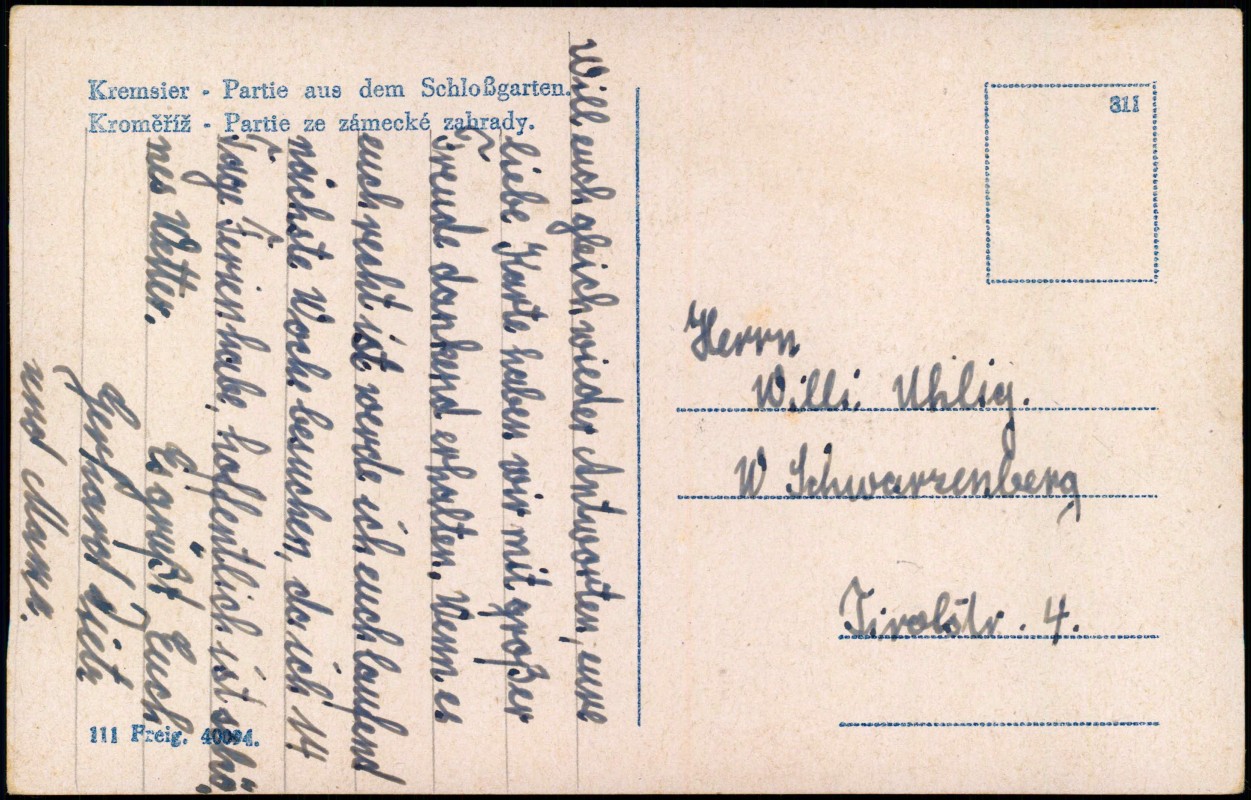 Kremsier - Partie aus dem Schloßgarten.
Kroměříž - Partie ze zámecké zahrady.
Will euch gleich wieder Antworten, eure
liebe Karte haben wir mit großer
Freude dankend erhalten. Wenn es
euch recht ist werde ich euch laufend
nächste Woche besuchen, da ich 14
Tage Ferien habe, hoffentlich ist schö
nes Wetter.
Es grüßt Euch
Gerhard Dietz
und Mama.
111 Freig. 40094.
311
Herrn
Willi Uhlig.
W Schwarzenberg
Tirolstr. 4.